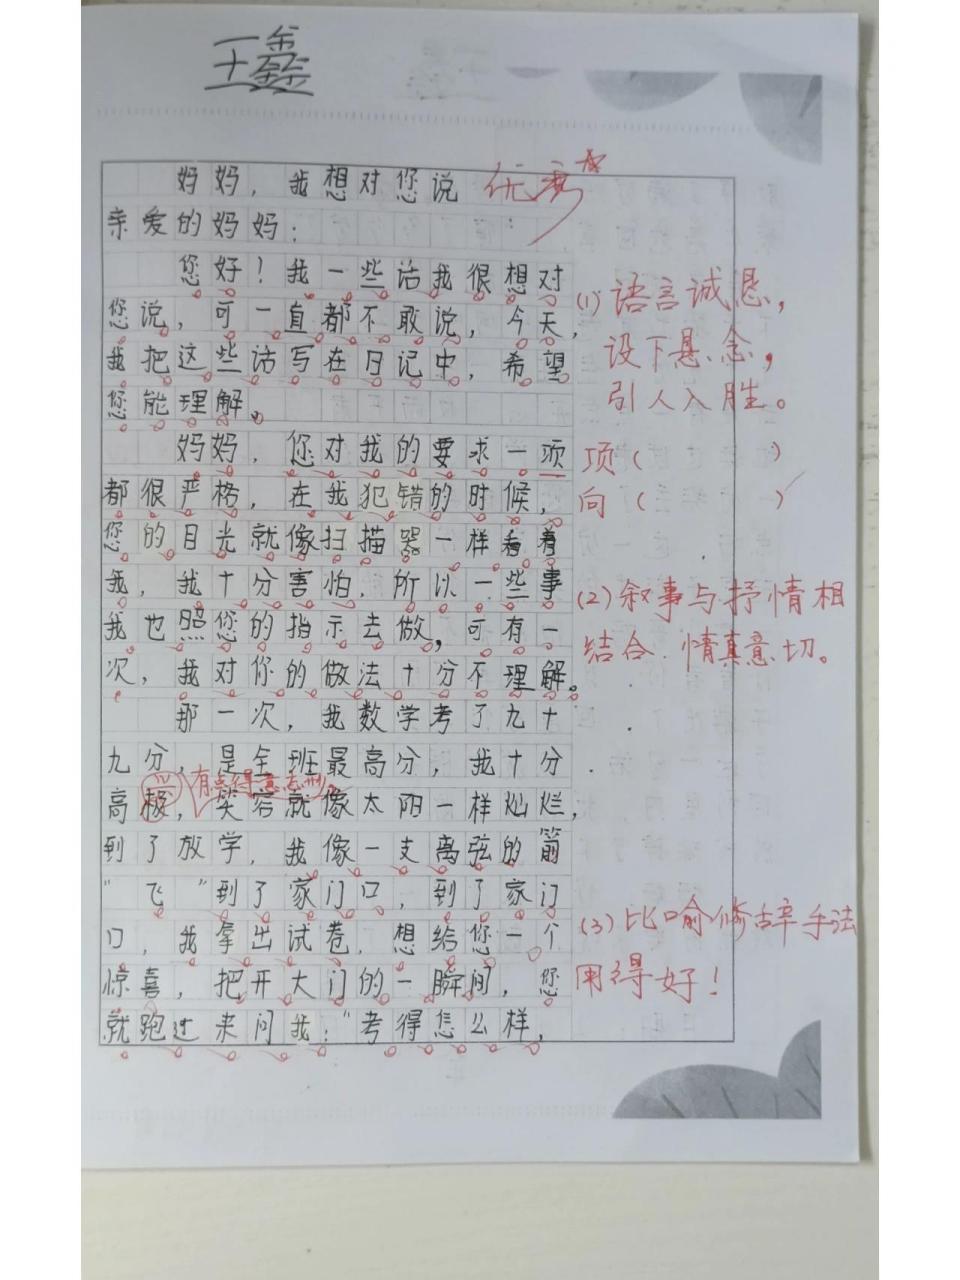 王鑫
妈妈，我想对您说 优秀
亲爱的妈妈：
您好！我一些话我很想对
您说，可一直都不敢说，今天，
我把这些话写在日记中，希望
您能理解。
(1)语言诚恳，
设下悬念，
引人入胜。
妈妈，您对我的要求一项
都很严格，在我犯错的时候，
项（ ）
向（ ）
您的目光就像扫描器一样看着
我，我十分害怕，所以一些事
我也照您的指示去做，可有一
次，我对你的做法十分不理解。
(2)叙事与抒情相
结合.情真意切。
那一次，我数学考了九十
九分，是全班最高分，我十分
兴 有点得意忘形。
高极，笑容就像太阳一样灿烂，
到了放学，我像一支离弦的箭
“飞”到了家门口，到了家门
口，我拿出试卷，想给您一个
惊喜，把开大门的一瞬间，您
就跑过来问我：“考得怎么样，
(3)比喻修辞手法
用得好！